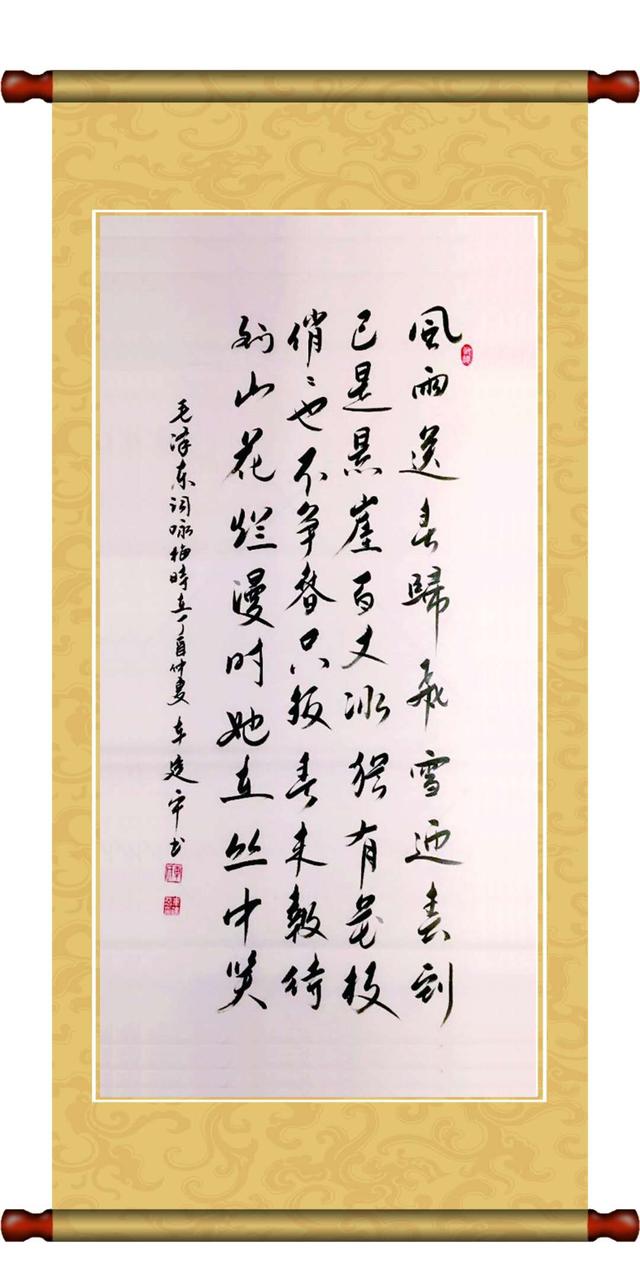 風雨送春歸飛雪迎春到
已是悬崖百丈冰猶有花枝
俏〻也不争春只报春来報待
到山花烂漫时她在丛中笑
毛泽东词咏梅時在丁酉仲夏 书